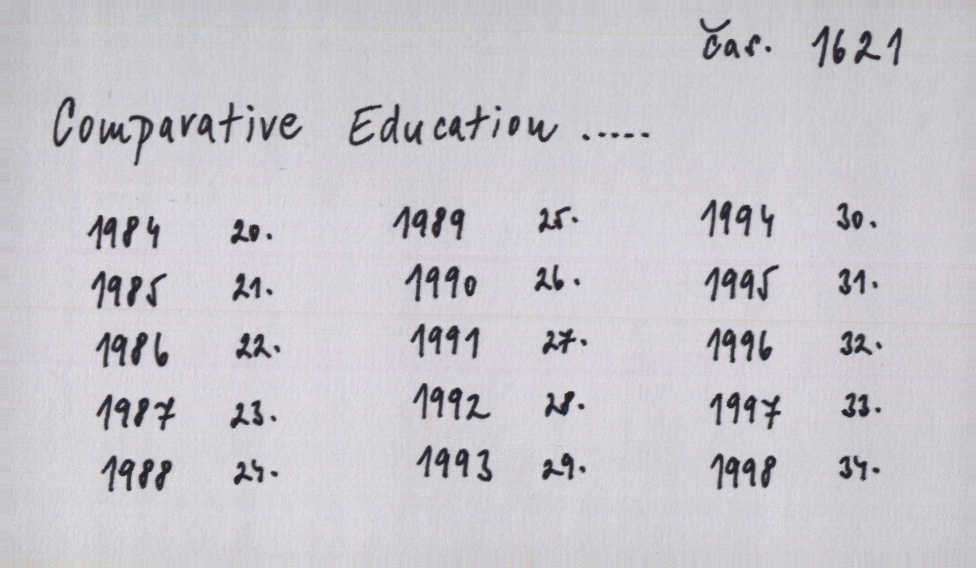 čas. 1621
Comparative Education .....
1984 20. 1989 25. 1994 30.
1985 21. 1990 26. 1995 31.
1986 22. 1991 27. 1996 32.
1987 23. 1992 28. 1997 33.
1988 24. 1993 29. 1998 34.